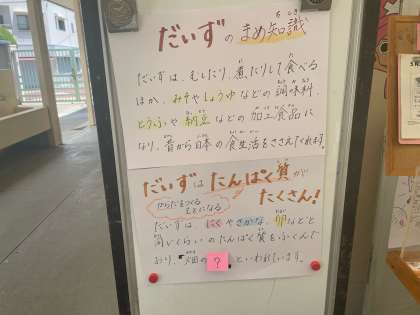 だいずのまめ知識
だいずは、むしたり、煮たりして食べる
ほか、みそやしょうゆなどの調味料、
とうふや納豆などの加工食品に
なり、昔から日本の食生活をささえてくれます。
だいずはたんぱく質が
たくさん!
からだをつくる
もとになる
だいずは、にくやさかな、卵などと
同じくらいのたんぱく質をふくんで
おり、"畑の?"といわれています。